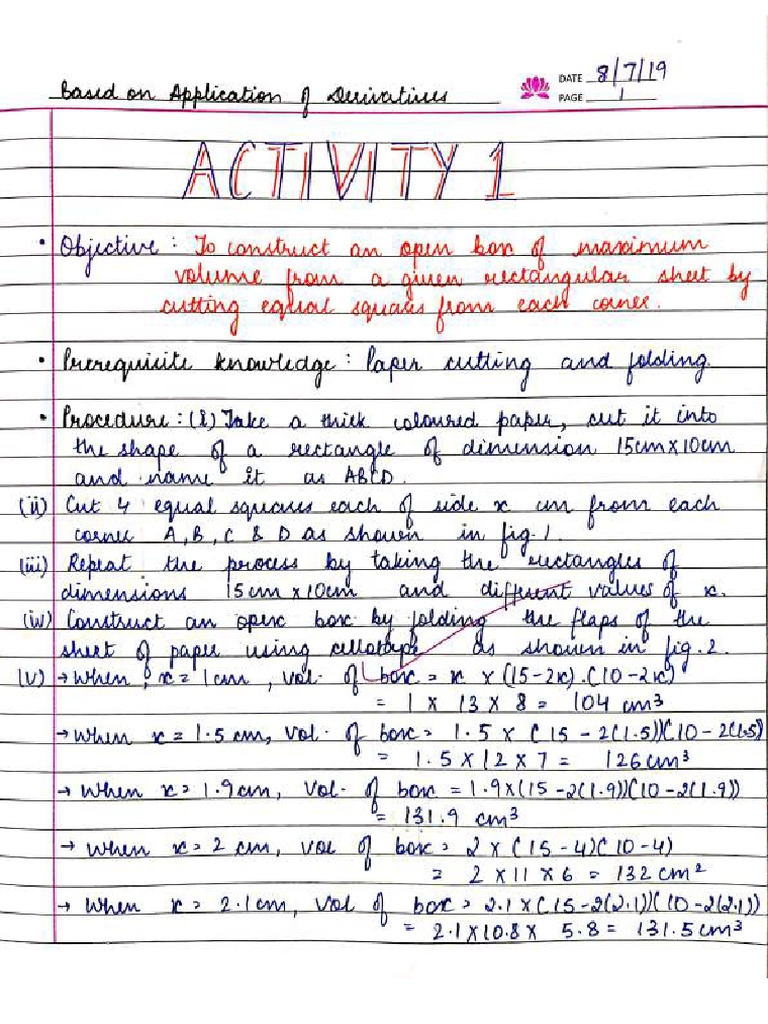 Based on Application of Derivatives
DATE 8/7/19
PAGE 1
ACTIVITY 1
• Objective : To construct an open box of maximum
volume from a given rectangular sheet by
cutting equal squares from each corner.
• Prerequisite knowledge : Paper cutting and folding.
• Procedure : (i) Take a thick coloured paper, cut it into
the shape of a rectangle of dimension 15cm x 10cm
and name it as ABCD.
(ii) Cut 4 equal squares each of side x cm from each
corner A, B, C & D as shown in fig. 1.
(iii) Repeat the process by taking the rectangles of
dimensions 15cm x 10cm and different values of x.
(iv) Construct an open box by folding the flaps of the
sheet of paper using cellotape as shown in fig. 2.
(v) → When, x = 1cm, vol. of box = x x (15-2x).(10-2x)
= 1 x 13 x 8 = 104 cm³
→ When x = 1.5 cm, vol. of box = 1.5 x (15 - 2(1.5))(10 - 2(1.5)
= 1.5 x 12 x 7 = 126 cm³
→ When x = 1.9cm, Vol. of box = 1.9x(15-2(1.9))(10-2(1.9))
= 131.9 cm³
→ When x = 2 cm, vol of box = 2 x (15-4)(10-4)
= 2 x 11 x 6 = 132 cm²
→ When x = 2.1cm, Vol of box = 2.1x(15-2(2.1))(10-2(2.1))
= 2.1x10.8x 5.8 = 131.5cm³